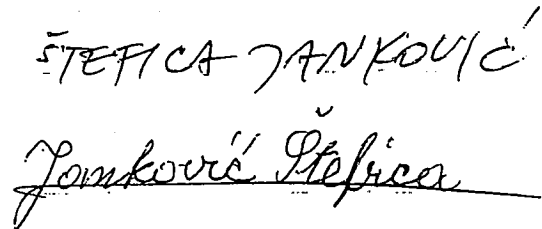 ŠTEFICA JANKOVIĆ
Janković Štefica